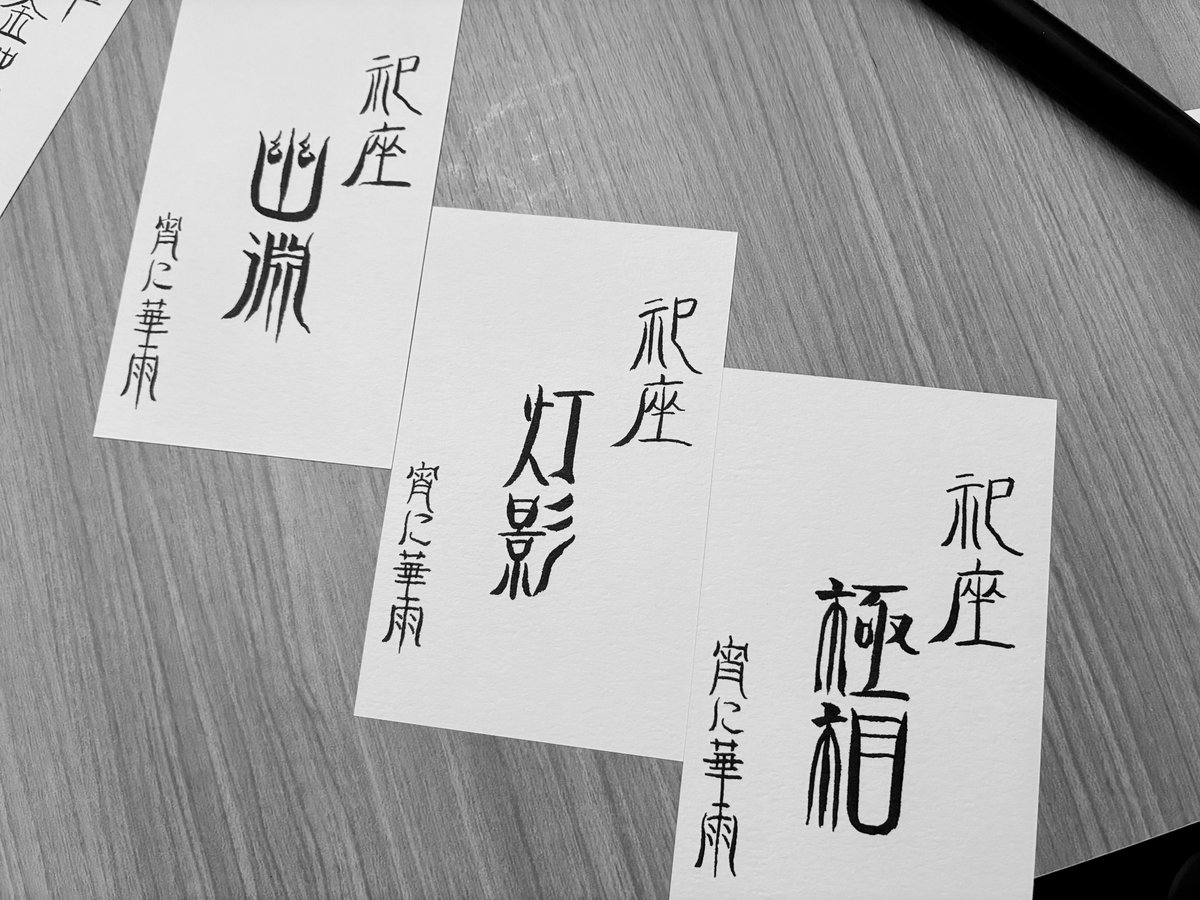 祀座
幽淵
宵に華雨
祀座
灯影
宵に華雨
祀座
極相
宵に華雨